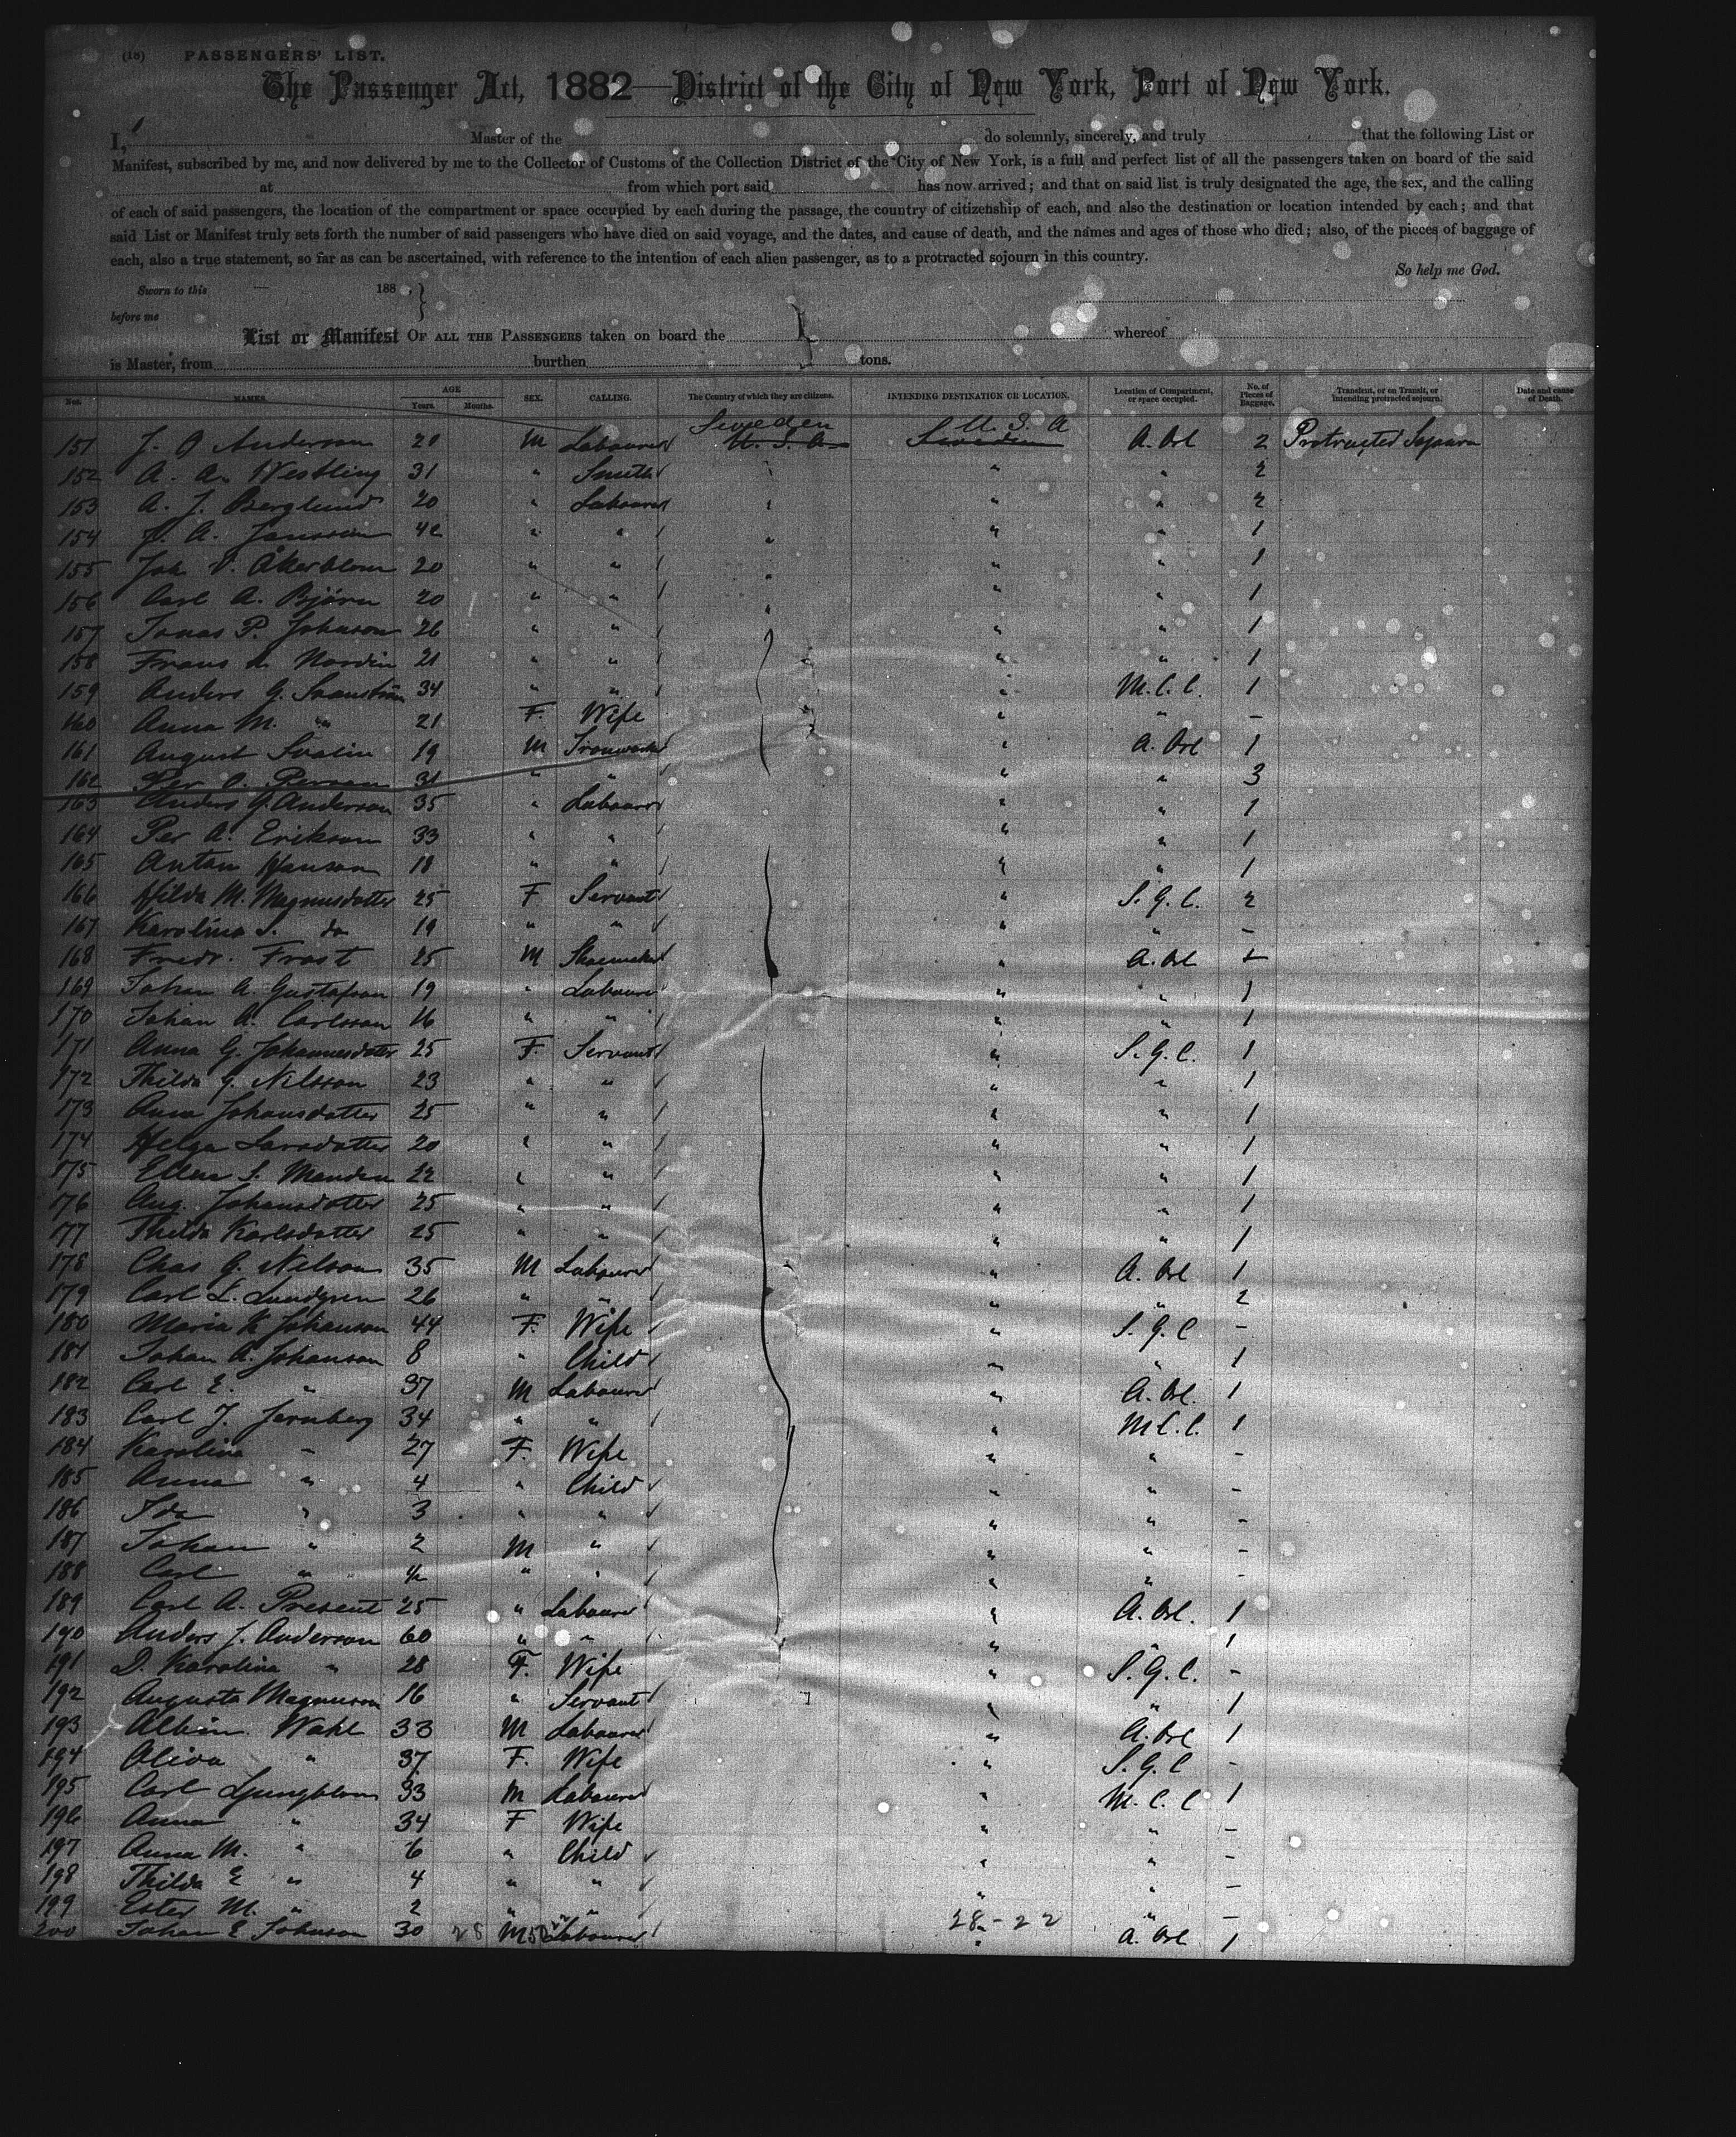 (18) PASSENGERS' LIST.
The Passenger Act, 1882—District of the City of New York, Port of New York.
I, Master of the do solemnly, sincerely, and truly that the following List or
Manifest, subscribed by me, and now delivered by me to the Collector of Customs of the Collection District of the City of New York, is a full and perfect list of all the passengers taken on board of the said
at from which port said has now arrived; and that on said list is truly designated the age, the sex, and the calling
of each of said passengers, the location of the compartment or space occupied by each during the passage, the country of citizenship of each, and also the destination or location intended by each; and that
said List or Manifest truly sets forth the number of said passengers who have died on said voyage, and the dates, and cause of death, and the names and ages of those who died; also, of the pieces of baggage of
each, also a true statement, so far as can be ascertained, with reference to the intention of each alien passenger, as to a protracted sojourn in this country.
So help me God.
Sworn to this 188
before me
List or Manifest OF ALL THE PASSENGERS taken on board the whereof
is Master, from burthen tons.
Nos. NAMES. AGE Years. Months. SEX. CALLING. The Country of which they are citizens. INTENDING DESTINATION OR LOCATION. Location of Compartment, or space occupied. No. of Pieces of Baggage. Transient, or on Transit, or intending protracted sojourn. Date and cause of Death.
Sweden U. S. A
151 J. O Anderson 20 M Labourer U. S. A. Sweden A. Orl 2 Protracted Sojourn
152 A. A. Westling 31 " Smith " " " 2
153 A. J. Berglund 20 " Labourer " " " 2
154 A. Jansson 42 " " " " " 1
155 Joh V. Åkerblom 20 " " " " " 1
156 Carl A. Björn 20 " " " " " 1
157 Jonas P. Johnson 26 " " " " 1
158 Frans A Nordin 21 " " " " 1
159 Anders G. Svanström 34 " " " M.C.C. 1
160 Anna M. " 21 F. Wife " " -
161 August Svalin 19 M Ironworker " A. Orl 1
162 Per O. Person 31 " " " " 3
163 Anders G. Anderson 35 " Labourer " " 1
164 Per A. Erikson 33 " " " " 1
165 Anton Hanson 18 " " " " 1
166 Hilda M. Magnusdotter 25 F Servant " S.G.C. 2
167 Karolina S. do 19 " " " " -
168 Fredr. Frost 25 M Shoemaker " A. Orl
169 Johan A. Gustafson 19 " Labourer " " 1
170 Johan A. Carlsson 16 " " " " 1
171 Anna G. Johannesdotter 25 F. Servant " S.G.C. 1
172 Thilda G. Nilsson 23 " " " " 1
173 Anna Johansdotter 25 " " " " 1
174 Helga Larsdotter 20 " " " " 1
175 Ellen S. 22 " " " " 1
176 Aug. Johansdotter 25 " " " " 1
177 Thilda Karlsdotter 25 " " " " 1
178 Chas G. Nilson 35 M Labourer " A. Orl 1
179 Carl L. Lundgren 26 " " " " 2
180 Maria K Johanson 44 F. Wife " S.G.C -
181 Johan A. Johanson 8 " Child " " 1
182 Carl E. " 37 M Labourer " A. Orl. 1
183 Carl J. Jernberg 34 " " " M.C.C. 1
184 Karolina " 27 F. Wife " " -
185 Anna " 4 " Child " " -
186 Ida " 3 " " " " -
187 Johan " 2 M " " " -
188 Carl " " " " " -
189 Carl A. Present 25 " Labourer " A. Orl. 1
190 Anders J. Anderson 60 " " " " 1
191 D. Karolina " 28 F. Wife " S.G.C. -
192 Augusta Magnuson 16 " Servant " " 1
193 Albin Wahl 33 M Labourer " A. Orl 1
194 Oliva " 37 F. Wife " S.G.C -
195 Carl Ljungblom 33 M Labourer " M.C.C 1
196 Anna " 34 F Wife " " -
197 Anna M. " 6 " Child " " -
198 Thilda E " 4 " " " " -
199 Ester M. " 2 " " " " -
28-22
200 Johan E Johnson 30 28 M Labourer " A. Orl 1